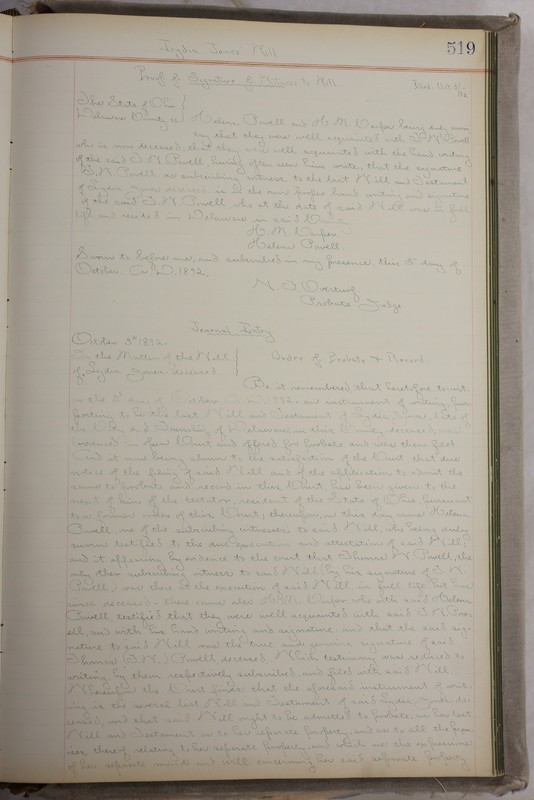 519
Lydia Jones Will
Proof of Signature of Witness to Will
Filed Oct 3/92
The State of Ohio
Delaware County ss Helena Powell and H. M. Carper being duly sworn
say that they were well acquainted with T. W. Powell
who is now deceased, that they were well acquainted with the hand writing
of the said T. W. Powell having often seen him write, that the signature
T. W. Powell as subscribing witness to the last Will and Testament
of Lydia Jones deceased is in the own proper hand writing and signature
of the said T. W. Powell, who at the date of said Will was in full
life and resided in Delaware in said County
H. M. Carper.
Helena Powell.
Sworn to before me, and subscribed in my presence, this 3d day of
October A. D. 1892.
N. F. Overturf
Probate Judge.
Journal Entry
October 3d 1892.
In the Matter of the Will
of Lydia Jones deceased
Order of Probate & Record
Be it remembered that heretofore to wit:
on the 3d day of October A. D. 1892, an instrument of writing pur-
porting to be the last Will and Testament of Lydia Jones late of
the City and Township of Delaware in this County, deceased, was
in open Court and offered for Probate and was then filed
And it now being shown to the satisfaction of the Court that due
notice of the filing of said Will and of the application to admit the
same to probate and record in this Court, has been given to the
next of kin of the testatrix, resident of the State of Ohio pursuant
to a former order of this Court; thereupon, on this day came Helena
Powell, one of the subscribing witnesses to said Will, who being duly
sworn testified to the due execution and attestation of said Will;
and it appearing by evidence to the court that Thomas W. Powell, the
only other subscribing witness to said Will (by his signature of T. W.
Powell) was there at the execution of said Will in full life but has
since deceased - there came also H. M. Carper who with said Helena
Powell testified that they were well acquainted with said T. W. Pow-
ell, and with his hand writing and signature, and that the said sig-
nature to said Will was the true and genuine signature of said
Thomas (T. W.) Powell deceased. Which testimony was reduced to
writing by them respectively subscribed, and filed with said Will.
Wherefore the Court finds that the aforesaid instrument of writ-
ing is the last Will and Testament of said Lydia Jones de-
ceased, and that said Will ought to be admitted to probate, as her last
Will and Testament as to her separate property, and as to all the
thereof, relating to her separate property, and which are the expressions
of her separate mind and will concerning her said separate property